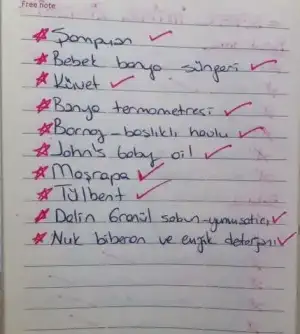 Free note
Şampuan
Bebek banyo süngeri
Küvet
Banyo termometresi
Bornoz-başlıklı havlu
John's baby oil
Maşrapa
Tülbent
Dalin Granül sabun-yumuşatıcı
Nuk biberon ve emzik deterjanı